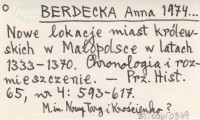 BERDECKA Anna 1974...
Nowe lokacje miast królew-
skich w Małopolsce w latach
1333-1370. Chronologia i roz-
mieszczenie. — Prz. Hist.
65, nr 4: 593-617.
M.in. Nowy Targ i Krościenko?